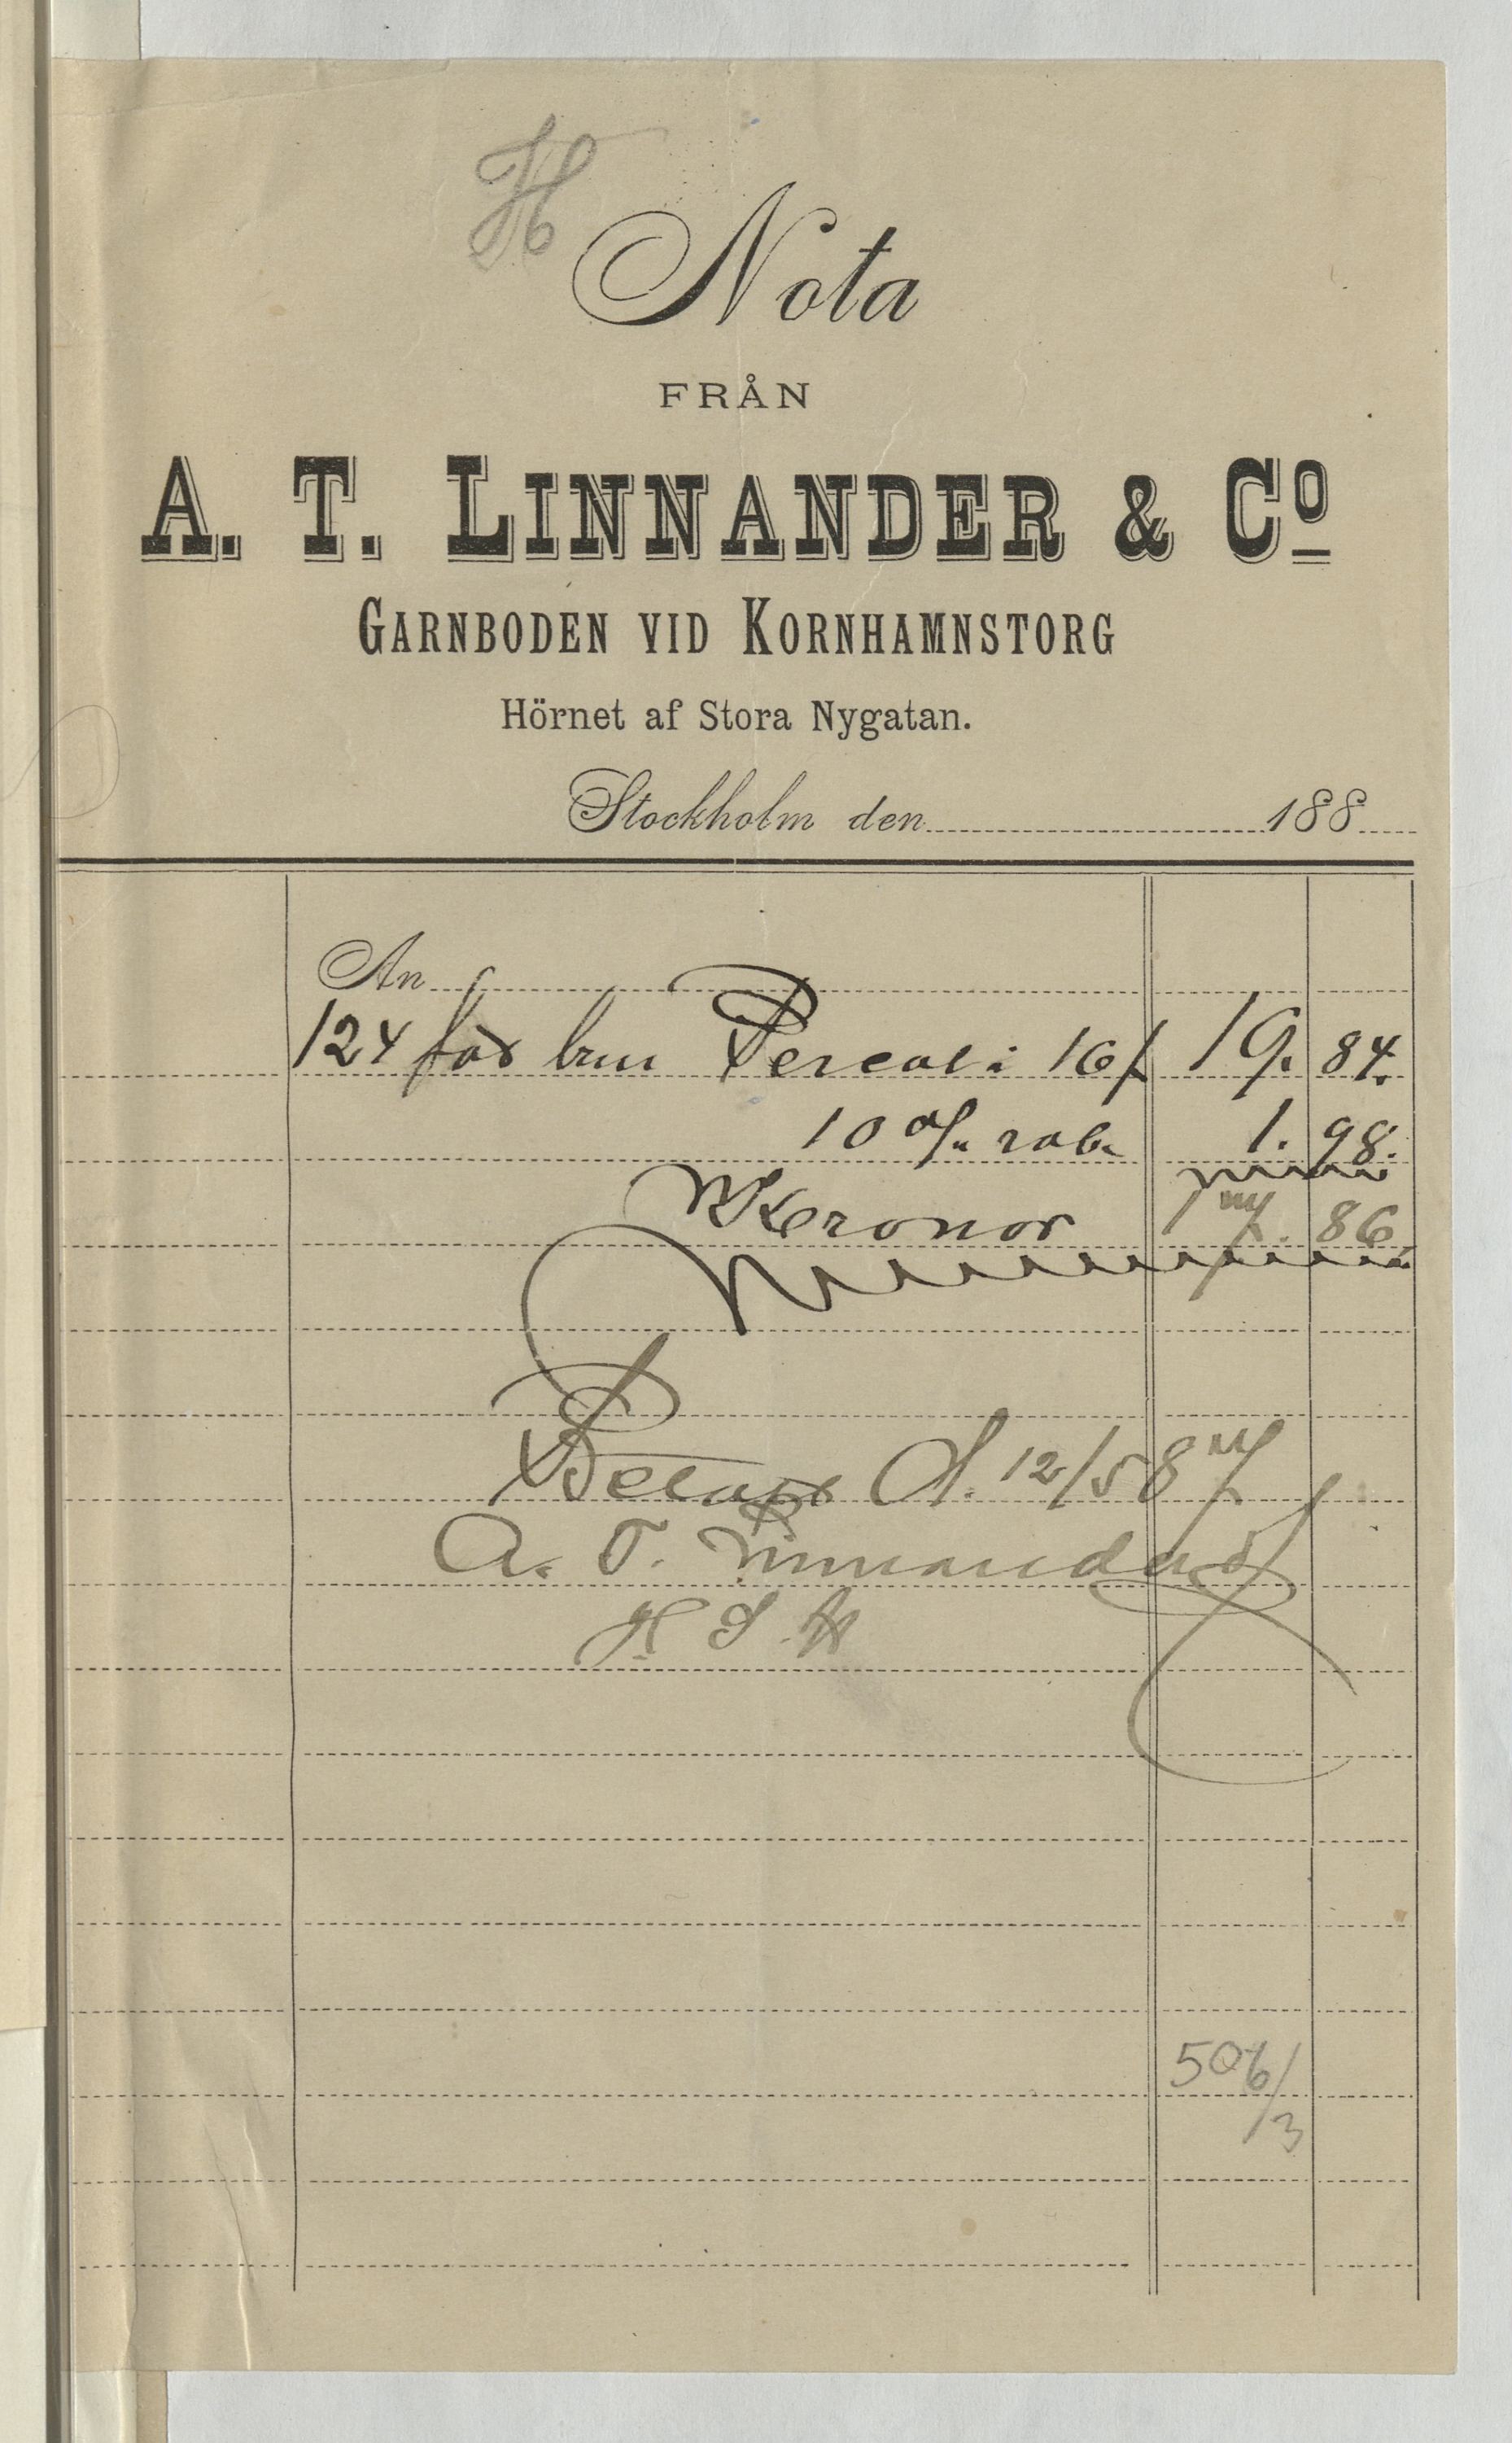 H
Nota
FRÅN
A. T. LINNANDER & Co
GARNBODEN VID KORNHAMNSTORG
Hörnet af Stora Nygatan.
Stockholm den 188
An
124 fot brun Percal i 16/ 19. 84.
10 % rab. 1. 98.
Kronor 17. 86.
Betalt d. 12/5 87
A. T. Linnander
506/3